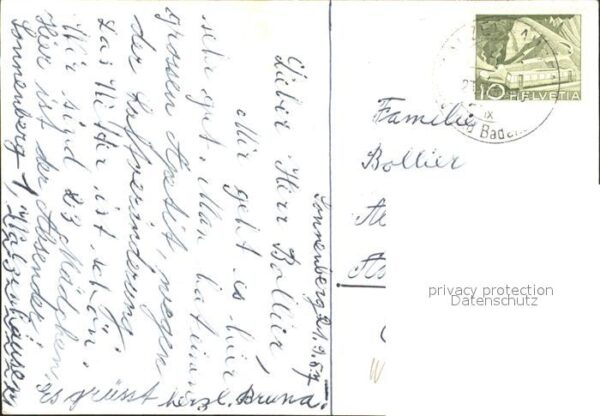 Sonnenberg 21.9.57
Lieber Herr Bollier,
Mir geht es hier
sehr gut. Man hat einen
grossen Apetit, wegen
der Luftveränderung.
Das Wetter ist schön.
Wir sind 23 Mädchen.
Hier ist der Absender:
Sonnenberg, Walzenhausen
Es grüsst herzl. Bruna.
10 HELVETIA
IX
Bad
Familie
Bollier
privacy protection
Datenschutz